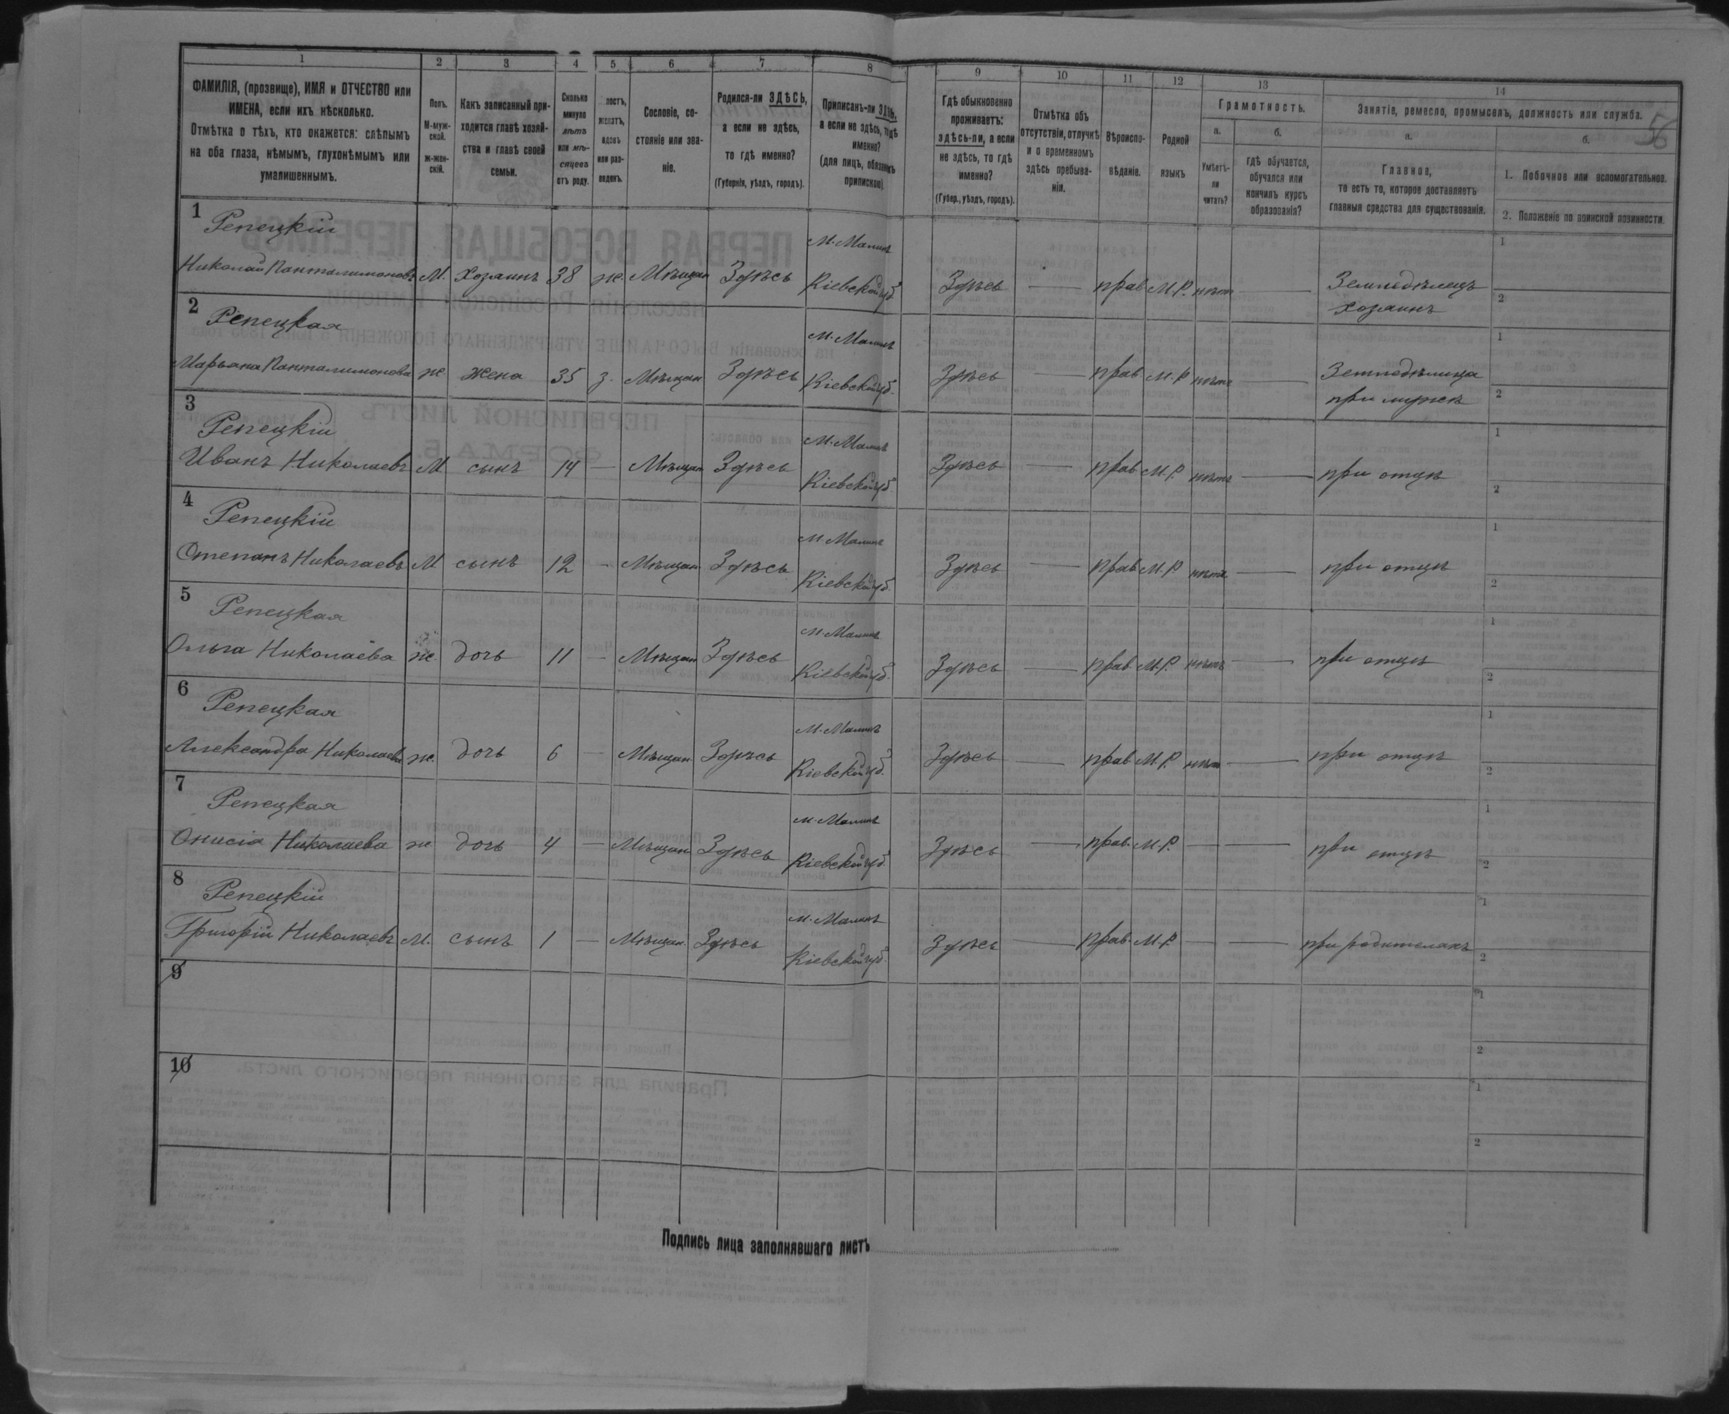 1 2 3 4 5 6 7 8 9 10 11 12 13 14
56
ФАМИЛІЯ, (прозвище), ИМЯ и ОТЧЕСТВО или
ИМЕНА, если ихъ нѣсколько.
Отмѣтка о тѣхъ, кто окажется: слѣпымъ
на оба глаза, нѣмымъ, глухонѣмымъ или
умалишеннымъ.
Полъ.
М-муж-
ской.
ж-жен-
скій.
Какъ записанный при-
ходится главѣ хозяй-
ства и главѣ своей
семьи.
Сколько
минуло
лѣтъ
или мѣ-
сяцевъ
отъ роду.
Сословіе, со-
стояніе или зва-
ніе.
Родился-ли ЗДѢСЬ,
а если не здѣсь,
то гдѣ именно?
(Губернія, уѣздъ, городъ).
Приписанъ-ли ЗДѢСЬ,
а если не здѣсь, то гдѣ
именно?
(для лицъ, обязанныхъ
припискою)
Гдѣ обыкновенно
проживаетъ:
здѣсь-ли, а если
не здѣсь, то гдѣ
именно?
(Губер., уѣздъ, городъ).
Отмѣтка объ
отсутствіи, отлучкѣ
и о временномъ
здѣсь пребыва-
ніи.
Вѣроиспо-
вѣданіе.
Родной
языкъ
Грамотность.
а.
Умѣетъ-
ли
читать?
б.
гдѣ обучается,
обучался или
кончилъ курсъ
образованія?
Занятія, ремесло, промыселъ, должность или служба.
а.
Главное,
то есть то, которое доставляетъ
главныя средства для существованія.
б.
1. Побочное или вспомогательное.
2. Положеніе по воинской повинности.
1 Репецкій м. Малинъ 1
Николай Пантелимоновъ М. хозяинъ 38 ж. Мѣщан Здѣсь Кіевской губ Здѣсь — прав М.Р. нѣтъ — Земледѣлецъ
хозяинъ 2
2 Репецкая м. Малинъ 1
Марьяна Пантелимонова ж жена 35 з. Мѣщан Здѣсь Кіевской губ. Здѣсь — прав М.Р нѣтъ — Земледѣлица
при мужѣ 2
3 Репецкій м. Малинъ 1
Иванъ Николаевъ М сынъ 14 — Мѣщан Здѣсь Кіевской губ Здѣсь — прав М.Р. нѣтъ — при отцѣ 2
4 Репецкій м. Малинъ 1
Степанъ Николаевъ М сынъ 12 - Мѣщан Здѣсь Кіевской губ. Здѣсь — прав М.Р нѣтъ — при отцѣ 2
5 Репецкая м. Малинъ 1
Ольга Николаева ж. дочь 11 — Мѣщан Здѣсь Кіевской губ. Здѣсь — прав М.Р. нѣтъ — при отцѣ 2
6 Репецкая м. Малинъ 1
Александра Николаева ж. дочь 6 — Мѣщан Здѣсь Кіевской губ. Здѣсь — прав М.Р. нѣтъ — при отцѣ 2
7 Репецкая м. Малинъ 1
Онисія Николаева ж дочь 4 — Мѣщан Здѣсь Кіевской губ Здѣсь — прав. М.Р. — — при отцѣ 2
8 Репецкій м. Малинъ 1
Григорій Николаевъ М. сынъ 1 — Мѣщан. Здѣсь Кіевской губ. Здѣсь — прав. М.Р — — при родителяхъ 2
9 1
2
10 1
2
Подпись лица заполнявшаго листъ